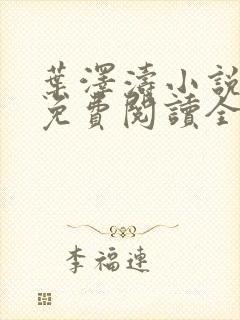 葉澤濤小說
免費閱讀全
李福連